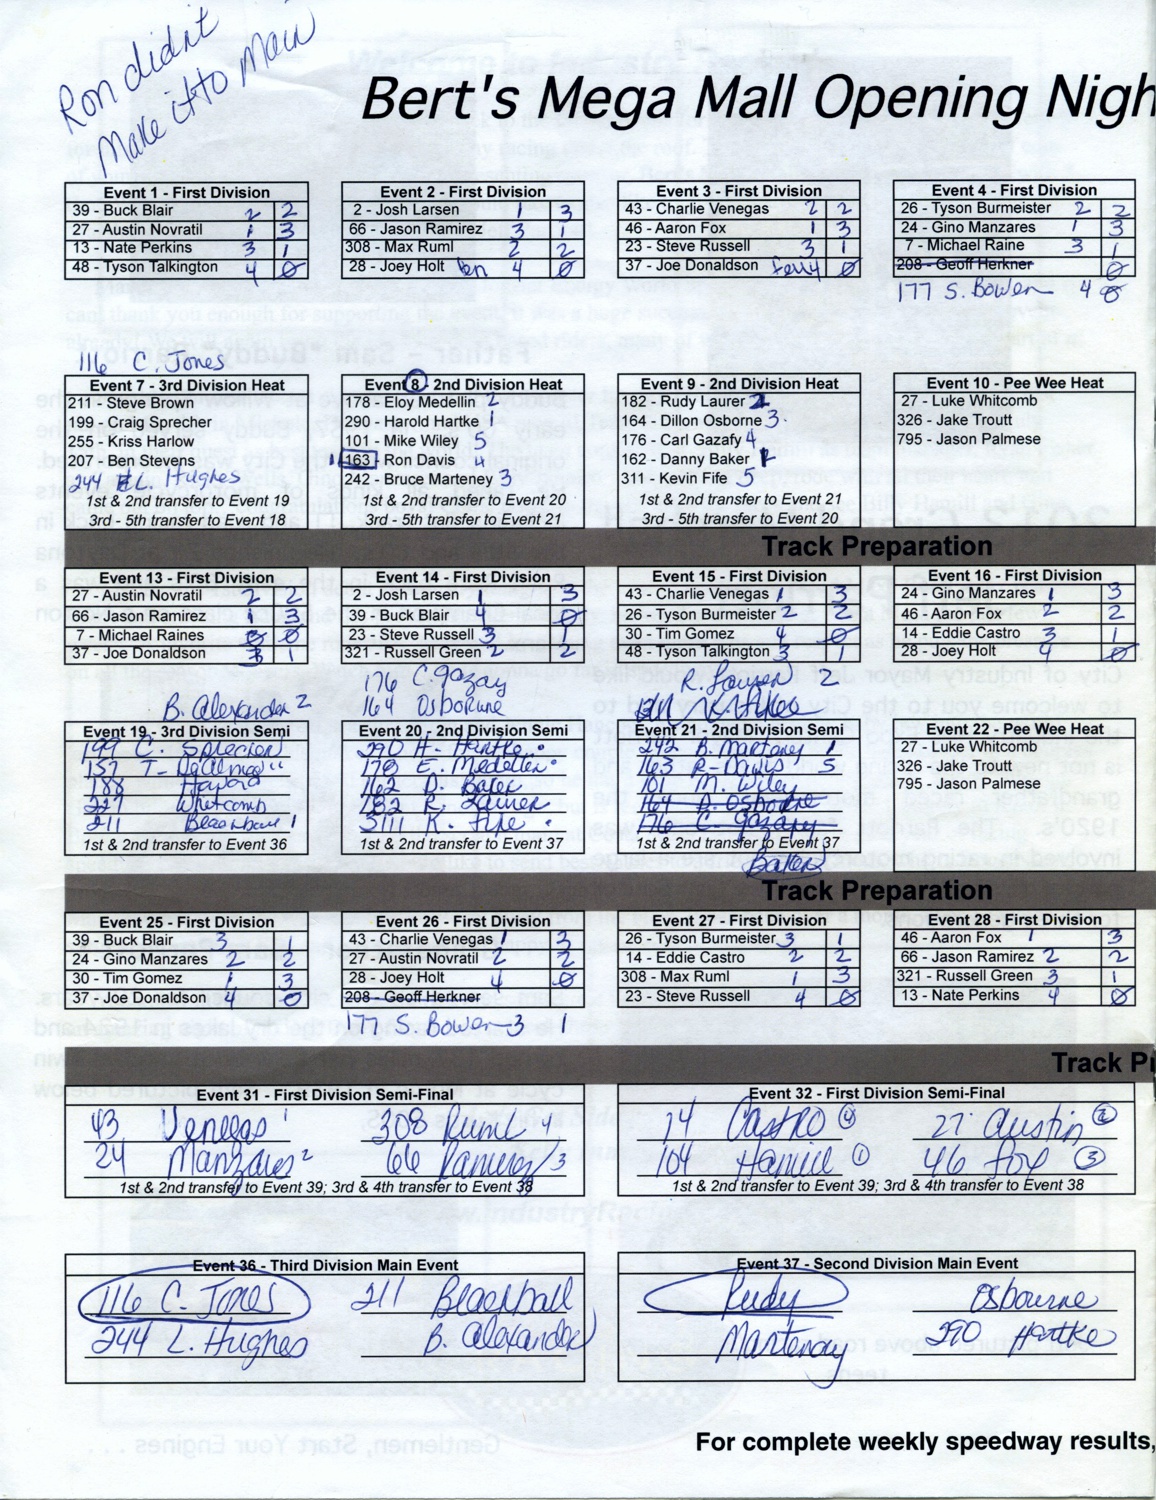 Ron didn't
Make it to Main
Bert's Mega Mall Opening Nigh
Event 1 - First Division
39 - Buck Blair 2 2
27 - Austin Novratil 1 3
13 - Nate Perkins 3 1
48 - Tyson Talkington 4 0
Event 2 - First Division
2 - Josh Larsen 1 3
66 - Jason Ramirez 3 1
308 - Max Ruml 2 2
28 - Joey Holt 4 0
Event 3 - First Division
43 - Charlie Venegas 2 2
46 - Aaron Fox 1 3
23 - Steve Russell 3 1
37 - Joe Donaldson 4 0
Event 4 - First Division
26 - Tyson Burmeister 2 2
24 - Gino Manzares 1 3
7 - Michael Raine 3 1
208 - Geoff Herkner 0
177 S. Bowen 4 0
116 C. Jones
Event 7 - 3rd Division Heat
211 - Steve Brown
199 - Craig Sprecher
255 - Kriss Harlow
207 - Ben Stevens
244 L. Hughes
1st & 2nd transfer to Event 19
3rd - 5th transfer to Event 18
Event 8 - 2nd Division Heat
178 - Eloy Medellin 2
290 - Harold Hartke 1
101 - Mike Wiley 5
163 - Ron Davis 4
242 - Bruce Marteney 3
1st & 2nd transfer to Event 20
3rd - 5th transfer to Event 21
Event 9 - 2nd Division Heat
182 - Rudy Laurer
164 - Dillon Osborne 3
176 - Carl Gazafy 4
162 - Danny Baker
311 - Kevin Fife 5
1st & 2nd transfer to Event 21
3rd - 5th transfer to Event 20
Event 10 - Pee Wee Heat
27 - Luke Whitcomb
326 - Jake Troutt
795 - Jason Palmese
Track Preparation
Event 13 - First Division
27 - Austin Novratil 2 2
66 - Jason Ramirez 1 3
7 - Michael Raines 0
37 - Joe Donaldson 3 1
Event 14 - First Division
2 - Josh Larsen 1 3
39 - Buck Blair 4 0
23 - Steve Russell 3 1
321 - Russell Green 2 2
Event 15 - First Division
43 - Charlie Venegas 1 3
26 - Tyson Burmeister 2 2
30 - Tim Gomez 4 0
48 - Tyson Talkington 3 1
Event 16 - First Division
24 - Gino Manzares 1 3
46 - Aaron Fox 2 2
14 - Eddie Castro 3 1
28 - Joey Holt 4 0
B. Alexander 2
Event 19 - 3rd Division Semi
199 C. Sprecher
188
227 Whitcomb
211 1
1st & 2nd transfer to Event 36
176 C. Gazay
164 Osborune
Event 20 - 2nd Division Semi
290 H. Hartke
178 E. Medellin
162 D. Baker
182 R. Laurer
311 K. Fife
1st & 2nd transfer to Event 37
R. Laurer 2
Event 21 - 2nd Division Semi
242 B. Marteney 1
163 R. Davis 5
101 M. Wiley
164 D. Osborne
176 C. Gazafy
1st & 2nd transfer to Event 37
Baker
Event 22 - Pee Wee Heat
27 - Luke Whitcomb
326 - Jake Troutt
795 - Jason Palmese
Track Preparation
Event 25 - First Division
39 - Buck Blair 3 1
24 - Gino Manzares 2 2
30 - Tim Gomez 1 3
37 - Joe Donaldson 4 0
Event 26 - First Division
43 - Charlie Venegas 1 3
27 - Austin Novratil 2 2
28 - Joey Holt 4 0
208 - Geoff Herkner
177 S. Bowen 3 1
Event 27 - First Division
26 - Tyson Burmeister 3 1
14 - Eddie Castro 2 2
308 - Max Ruml 1 3
23 - Steve Russell 4 0
Event 28 - First Division
46 - Aaron Fox 1 3
66 - Jason Ramirez 2 2
321 - Russell Green 3 1
13 - Nate Perkins 4 0
Track P
Event 31 - First Division Semi-Final
43 Venegas 1 308 Ruml 4
24 Manzares 2 66 Ramirez 3
1st & 2nd transfer to Event 39; 3rd & 4th transfer to Event 38
Event 32 - First Division Semi-Final
14 Castro 4 27 Austin 2
104 Hamill 1 46 Fox 3
1st & 2nd transfer to Event 39; 3rd & 4th transfer to Event 38
Event 36 - Third Division Main Event
116 C. Jones 211 Beachball
244 L. Hughes B. Alexander
Event 37 - Second Division Main Event
Rudy Osbourne
Marteney 290 Hartke
For complete weekly speedway results,